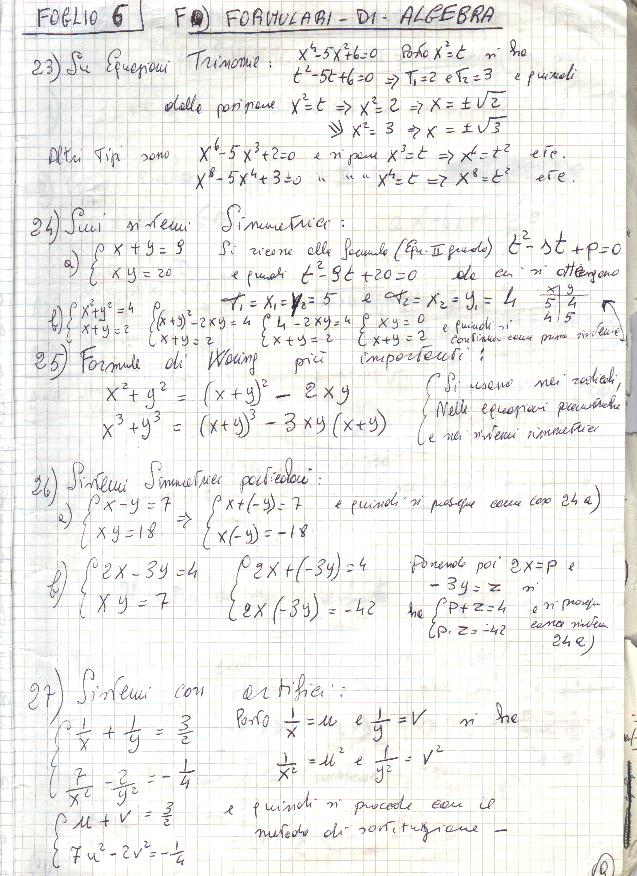 FOGLIO 6 F) FORMULARI-DI-ALGEBRA
23) Su Equazioni Trinomie: x⁴-5x²+6=0 Posto x²=t si ha
t²-5t+6=0 => T₁=2 e T₂=3 e quindi
dalla posizione x²=t => x²=2 => x=±√2
=> x²=3 => x=±√3
Altri tipi sono x⁶-5x³+2=0 e si pone x³=t => x⁶=t² etc.
x⁸-5x⁴+3=0 " " " x⁴=t => x⁸=t² etc.
24) Sui sistemi Simmetrici:
a) { x+y=9 Si ricorre alla formula (Equ. II grado) t²-st+p=0
xy=20 e quindi t²-9t+20=0 da cui si ottengono
T₁=x₁=y₂=5 e T₂=x₂=y₁=4 x|y 5|4 4|5
b) { x²+y²=4 { (x+y)²-2xy=4 { 4-2xy=4 { xy=0 e quindi si
x+y=2 x+y=2 x+y=2 x+y=2 continua come primo sistema
25) Formule di Waring più importanti:
x²+y² = (x+y)² - 2xy { Si usano nei radicali,
x³+y³ = (x+y)³ - 3xy(x+y) Nelle equazioni parametriche
e nei sistemi simmetrici
26) Sistemi Simmetrici particolari:
a) { x-y=7 => { x+(-y)=7 e quindi si prosegue come caso 24a)
xy=18 x(-y)=-18
b) { 2x-3y=4 { 2x+(-3y)=4 Ponendo poi 2x=p e
xy=7 2x(-3y)=-42 -3y=z si
ha { p+z=4 e si prosegue
p·z=-42 come sistema
24a)
27) Sistemi con artifici:
{ 1/x + 1/y = 3/2 Posto 1/x=u e 1/y=v si ha
7/x² - 2/y² = -1/4 1/x²=u² e 1/y²=v²
{ u+v=3/2 e quindi si procede con il
7u²-2v²=-1/4 metodo di sostituzione-